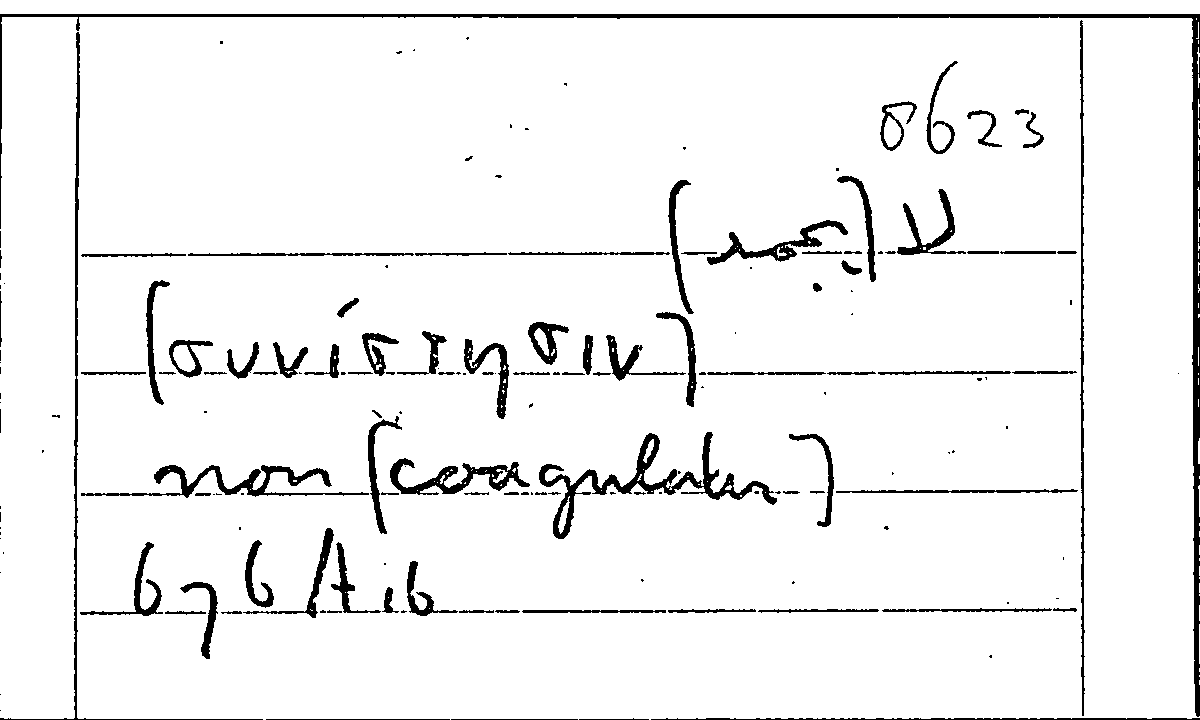 8623
[συνίστησιν]
non [coagulatur]
676 A 16